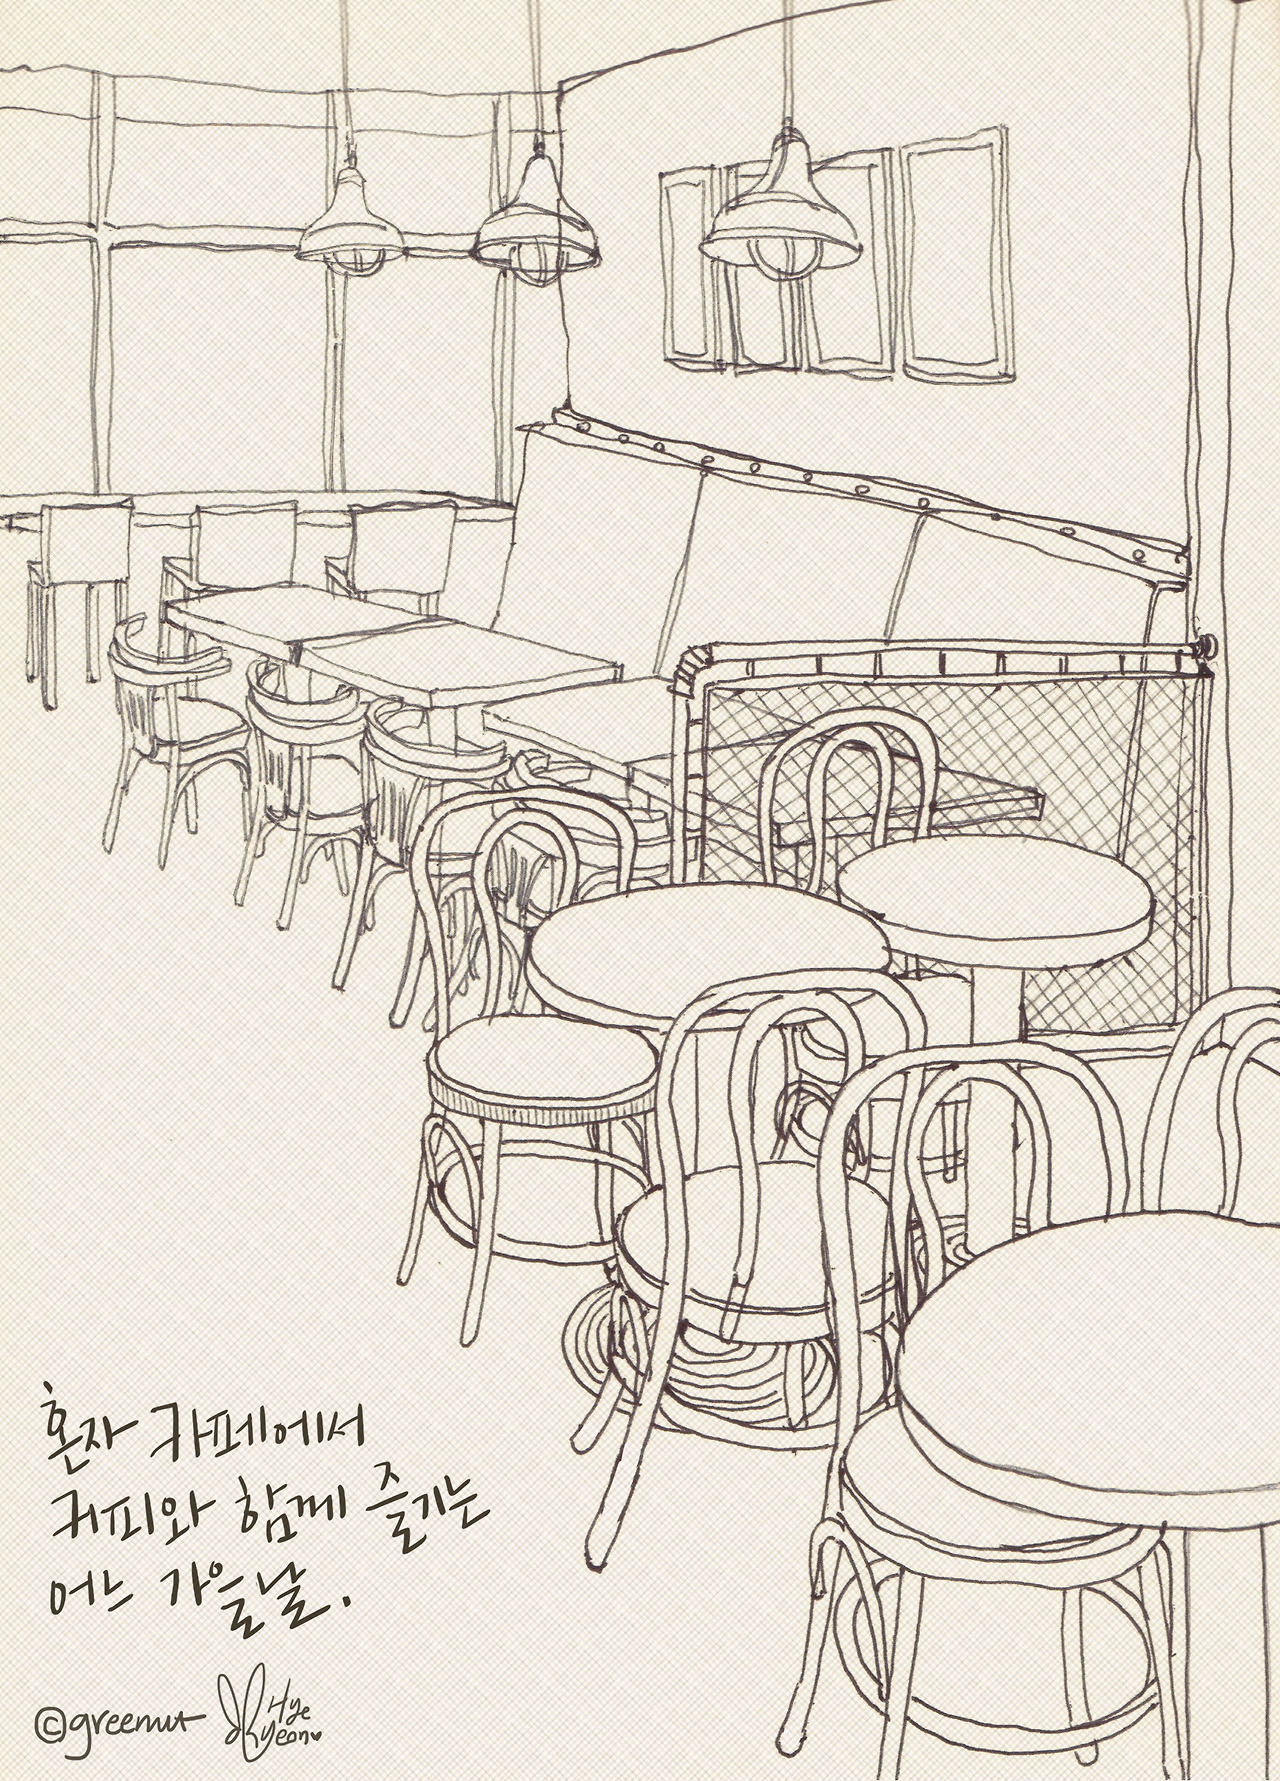 혼자 카페에서
커피와 함께 즐기는
어느 가을날.
©greenut
Hye
Ryeon♥